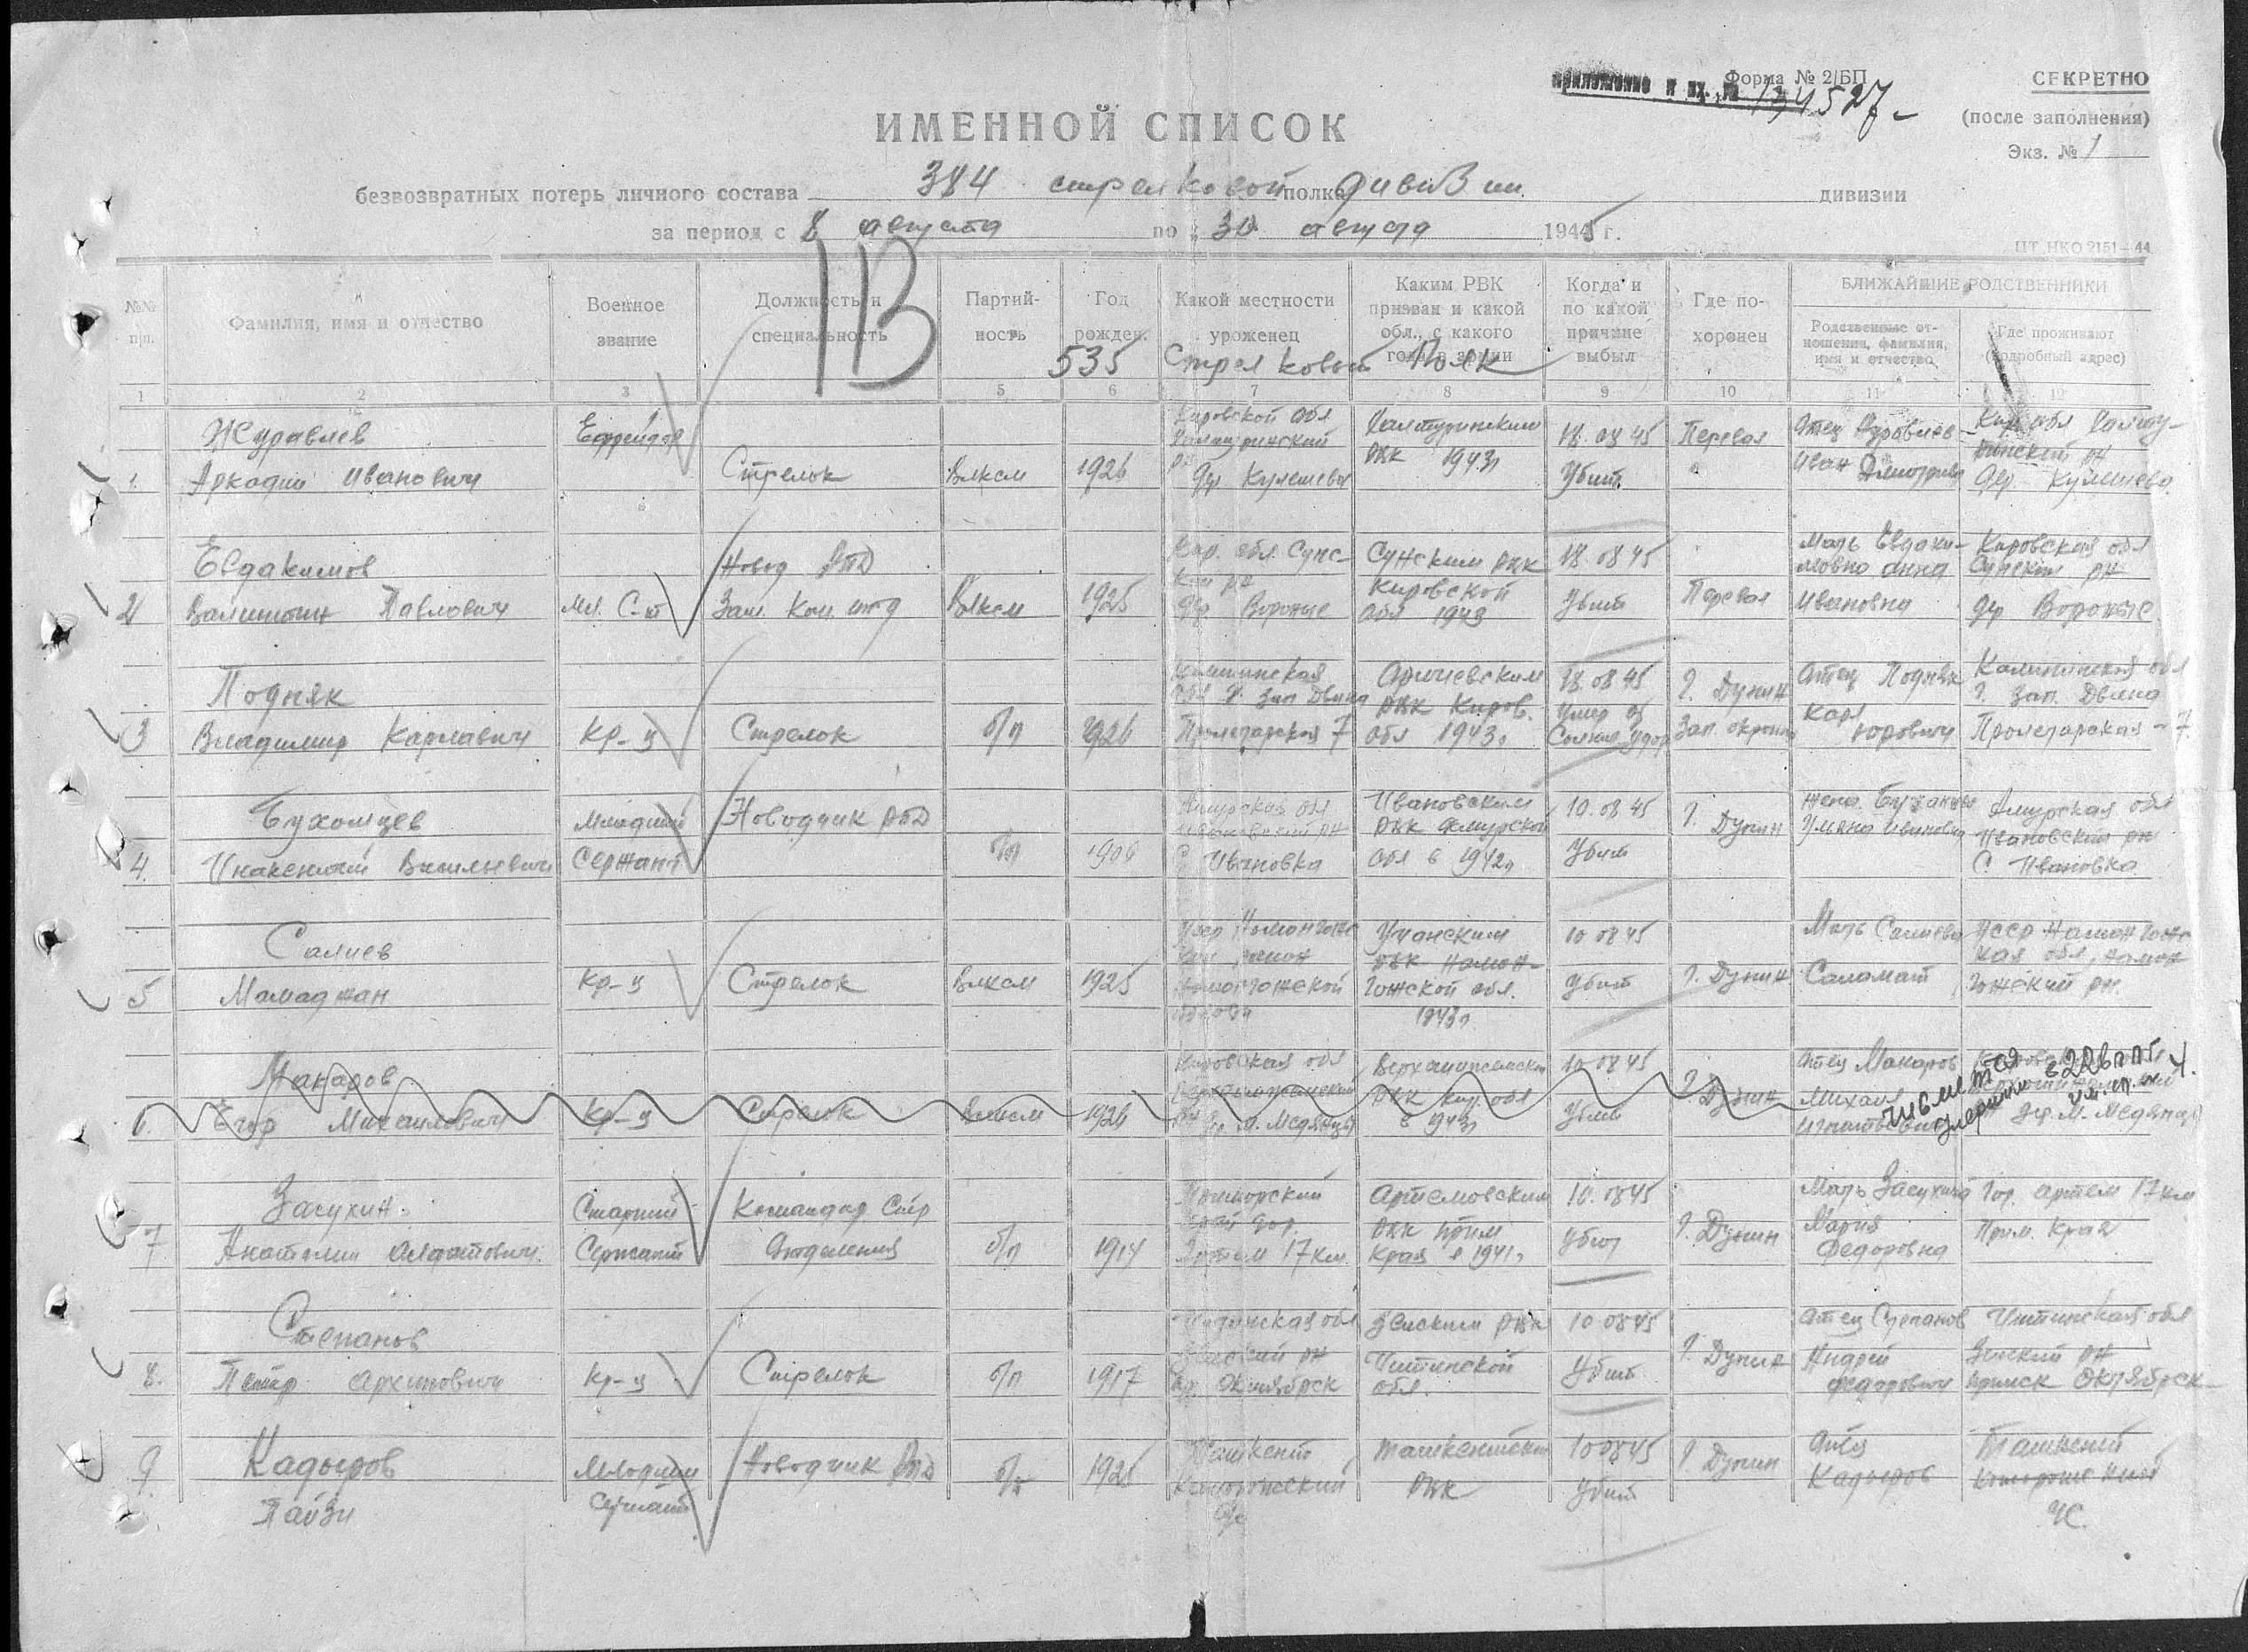 Форма № 2/БП
СЕКРЕТНО
приложение к вх. № 134527
(после заполнения)
Экз. № 1
ИМЕННОЙ СПИСОК
безвозвратных потерь личного состава 384 стрелковой полка дивизии дивизии
за период с 8 августа по 30 августа 1945 г.
ЦТ НКО 2151—44
1В
№№ п/п.
Фамилия, имя и отчество
Военное звание
Должность и специальность
Партий-
ность
Год рожден.
Какой местности уроженец
Каким РВК призван и какой обл., с какого года в армии
Когда и по какой причине выбыл
Где по-
хоронен
БЛИЖАЙШИЕ РОДСТВЕННИКИ
Родственные от-
ношения, фамилия, имя и отчество
Где проживают (подробный адрес)
535 Стрелковый Полк
1 2 3 5 6 7 8 9 10 11 12
1. Журавлев
Аркадий Иванович
Ефрейтор
Стрелок
Влксм
1926
Кировской обл
Халтуринский
рн
дер Кулешева
Халтуринским
рвк 1943г
18.08 45
Убит.
Перевал
Отец Журавлев
Иван
Кир обл Халту-
ринский рн
дер Кулешево.
2 Евдакимов
Валинтин Павлович
Мл. С-т
Новод РПД
Зам. Ком. отд
Влксм
1925
Кир. обл. Сунс-
кий рн
дер. Вороные
Сунским рвк
Кировской
обл 1943
18.08 45
Убит
Перевал
Мать Евдоки-
мовна Анна
Ивановна
Кировская обл
Сунский рн
дер Вороные
3 Подняк
Владимир Карлавич
Кр-ц
Стрелок
б/п
1926
Калининская
обл г. Зап Двина
Пролетарская 7
рвк Киров.
обл 1943г
18.08 45
Умер от
Солнеч. удар
г. Дунин
Зап. окраина
Отец Подняк
Карл
Юрович
Калининская обл
г. Зап. Двина
Пролетарская - 7.
4. Бухомцев
Инакентий Васильевич
Младший
Сержант
Новодчик РПД
б/п
1906
Амурская обл
Ивановский рн
С. Ивановка
Ивановским
рвк Амурской
обл в 1942г
10.08 45
Убит
г. Дунин
Жена.
Ульяна Ивановна
Амурская обл
Ивановский рн
С. Ивановка
5 Салиев
Мамаджан
Кр-ц
Стрелок
Влксм
1925
Уср Намонгонс
кий район
Намонгонжской
области
Учанским
рвк Намон-
гонжской обл.
1943г
10 08 45
Убит
г. Дунин
Мать Салиева
Саламат
Усср Намонгонжс
кая обл, Намон
гонжский рн.
6. Макаров
Егор Михаилович
Кр-ц
Стрелок
Влксм
1926
Кировская обл
рн дер М. Медянцы
рвк Кир. обл
в 1943г
10.08 45
Убит
г. Дунин
Отец Макаров
Михаил
Игнатьевич
дер. М. Медянцы
числится
умершим в 22вппг
7 Засухин.
Анатолий
Старший
Сержант
Командир Стр
Отделения
б/п
1914
Приморский
край гор.
Артем 17 км.
Артемовским
рвк прим
края в 1941г
10.08 45
убит
г. Дунин
Мать Засухина
Мария
Федоровна
Гор. Артем 17 км
Прим. Края
8. Степанов
Петр Архипович
Кр-ц
Стрелок
б/п
1917
Читинская обл
Зейский рн
пр. Октябрск
Зейским рвк
Читинской
обл.
10 08 45
Убит
г. Дунин
Отец Степанов
Андрей
Федорович
Читинская обл
Зейский рн
прииск Октябрск
9. Кадыров
Пайзи
Младший
Сержант
Новодчик РПД
б/п
1925
Ташкент
Ташкентским
рвк
10 08 45
Убит
г. Дунин
Отец
Кадыров
Ташкент